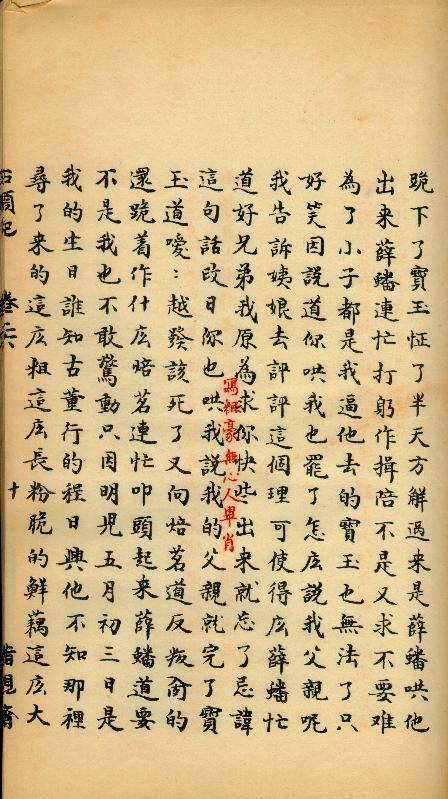 跪下了寶玉怔了半天方解過来是薛蟠哄他
出来薛蟠連忙打躬作揖陪不是又求不要难
為了小子都是我逼他去的寶玉也無法了只
好笑因説道你哄我也罷了怎庅説我父親呢
我告訴姨娘去評評這個理可使得庅薛蟠忙
道好兄弟我原為求你快些出来就忘了忌諱
這句話改日你也哄我說我的父親就完了寶
寫粗豪無心人畢肖
玉道嗳：越發該死了又向焙茗道反叛肏的
還跪着作什庅焙茗連忙叩頭起来薛蟠道要
不是我也不敢驚動只因明児五月初三日是
我的生日誰知古董行的程日興他不知那裡
尋了来的這庅粗這庅長粉脆的鮮藕這庅大
石頭記 卷二六 十 脂硯齋